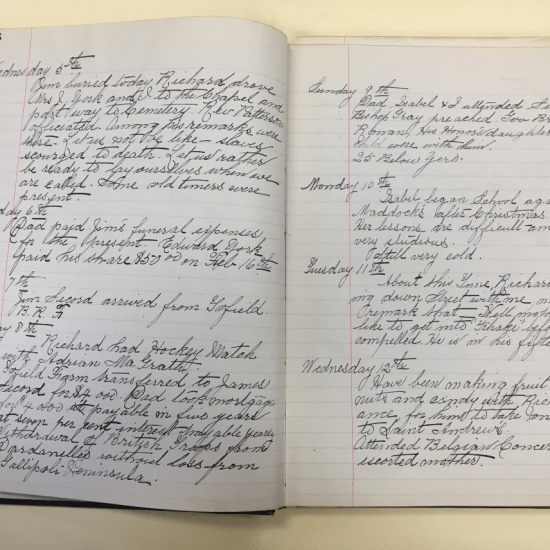 Wednesday 5th
Jim buried today. Richard drove
Mrs J York and I to the Chapel and
part way to Cemetery. Rev Patterson
officiated. Among his remarks were
Let us not be like slaves
scourged to death. Let us rather
be ready to lay ourselves when we
are called. Some old timers were
present.
day 6th
Dad paid Jim's funeral expenses
for the present. Edward York
paid his share $50.00 on Feb 16th
7th
Jim Secord arrived from Tofield.
8th
Richard had Hockey Match
with Adrian McGrath.
Tofield Farm transferred to James
Secord for $4000. Dad took mortgage
for 4000 payable in five years
at seven per cent interest payable yearly
Withdrawal of British Troops from
Dardanelles without loss from
Gallipoli Peninsula.
Sunday 9th
Dad Isabel & I attended
Bishop Gray preached. Gov
His Honor's daughter
child were with him.
25 Below Zero.
Monday 10th
Isabel began School
Maddocks after Christmas
Her lessons are difficult
very studious.
still very cold.
Tuesday 11th
About this time, Richard
ing down Street with me,
remark that Well
like to get into Khaki
compelled. He is in his
Wednesday 12th
Have been making fruit
nuts and candy with
ance, for him to take
to Saint Andrew's
Attended Belgian Concer
escorted mother.